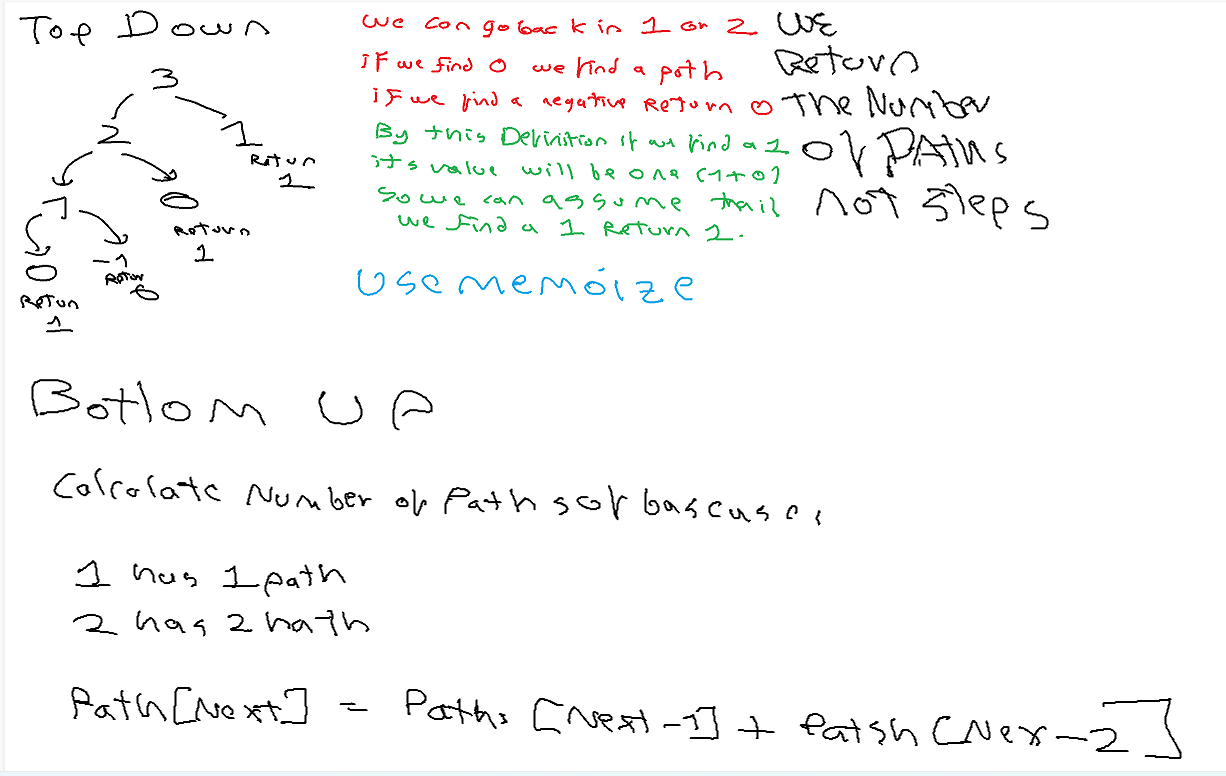 Top Down
3
2
1
Retun
1
1
0
Return
1
0
Retun
1
-1
Retur
0
we can go back in 1 or 2
if we find 0 we find a path
if we find a negative Return 0
By this Definition if we find a 1
its value will be one (1+0)
So we can assume
we find a 1 Return 1.
Use memoize
WE
Return
The Number
of PAths
not steps
Bottom UP
Calculate Number of Path
1 has 1 path
2 has 2 path
Path[Next] = Paths [Next-1] + Patsh [Nex-2]